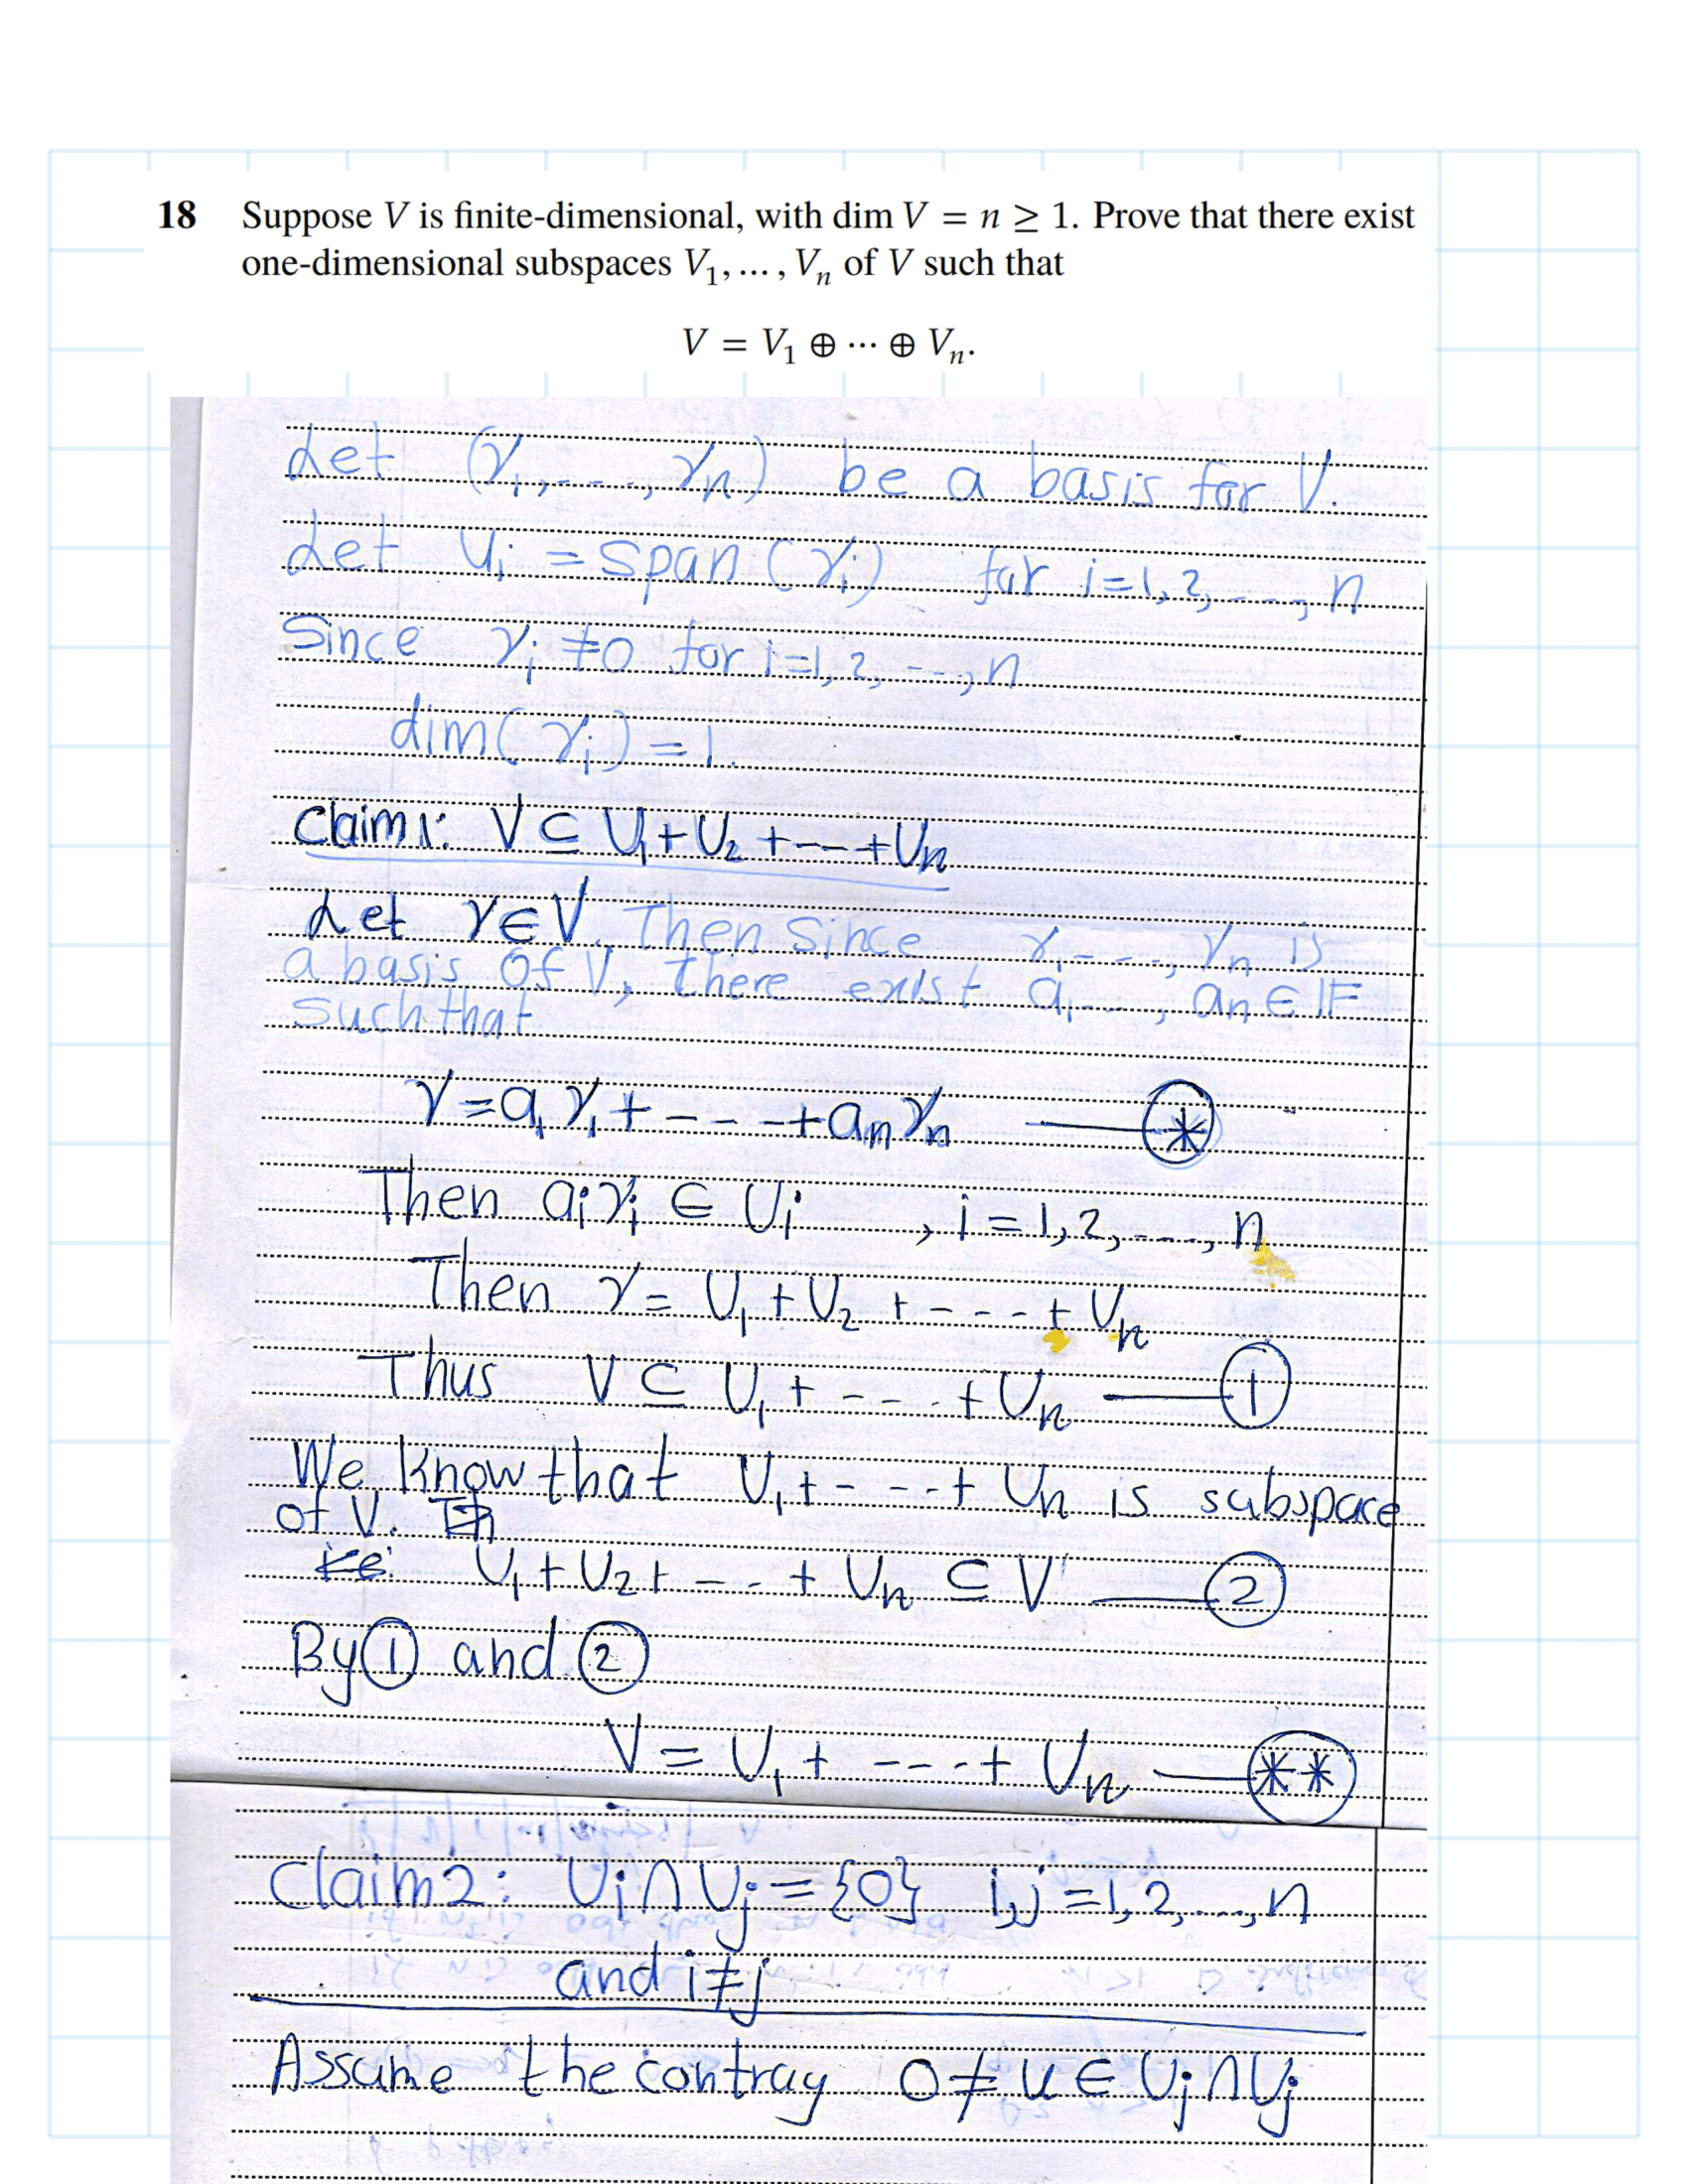 18 Suppose V is finite-dimensional, with dim V = n ≥ 1. Prove that there exist
one-dimensional subspaces V₁, ... , Vₙ of V such that
V = V₁ ⊕ ⋯ ⊕ Vₙ.
Let (v₁, ----, vₙ) be a basis for V.
Let Uᵢ = span (vᵢ) for i=1, 2, ----, n
Since vᵢ ≠0 for i=1, 2, ---, n
dim(vᵢ) = 1.
Claim1: V ⊆ U₁+U₂ +---+Uₙ
Let v∈V. Then Since v₁ - - -, vₙ is
a basis of V, there exist a₁ - - -, aₙ ∈ 𝔽
Such that
v = a₁v₁ + - - - +aₙvₙ —— ⊛
Then aᵢvᵢ ∈ Uᵢ , i = 1, 2, ----, n
Then v = U₁ + U₂ + - - - + Uₙ
Thus V ⊆ U₁ + - - - + Uₙ —— ①
We know that U₁ + - - - + Uₙ is subspace
of V.
U₁ + U₂ + - - - + Uₙ ⊆ V —— ②
By ① and ②
V = U₁ + - - - + Uₙ —— (**)
Claim2: Uᵢ∩Uⱼ = {0} i,j = 1, 2, ..., n
and i≠j
Assume the contray 0 ≠ u ∈ Uᵢ∩Uⱼ